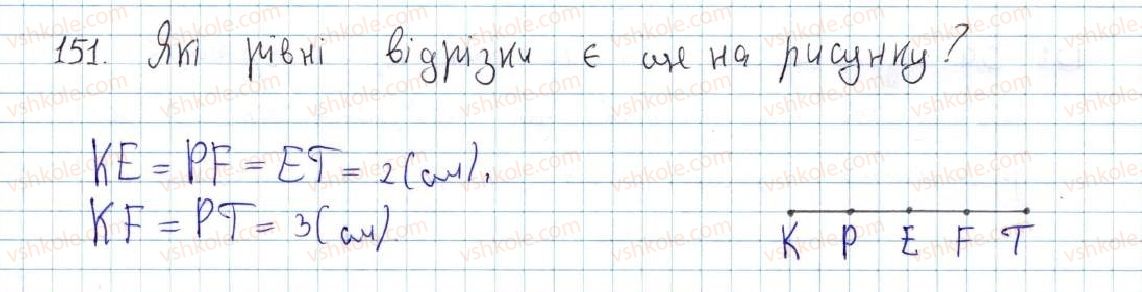 151. Які рівні відрізки є ще на рисунку?
KE = PF = ET = 2 (см),
KF = PT = 3 (см).
K P E F T
vshkole.com